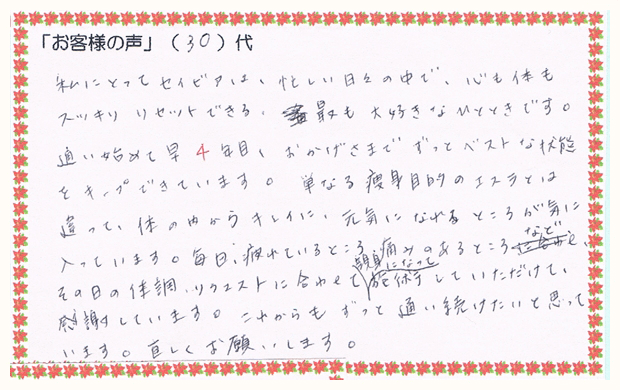 「お客様の声」（30）代
私にとってセイビアは、忙しい日々の中で、心も体も
スッキリリセットできる、最も大好きなひとときです。
通い始めて早4年目、おかげさまでずっとベストな状態
をキープできています。単なる痩身目的のエステとは
違って、体の中からキレイに、元気になれるところが気に
入っています。毎日、疲れているところ、痛みのあるところなど、
その日の体調、リクエストに合わせて親身になって施術していただけて、
感謝しています。これからもずっと通い続けたいと思って
います。宜しくお願いします。